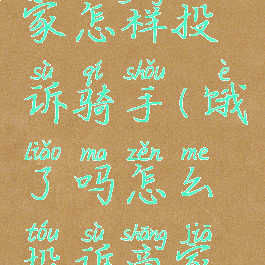 家怎样投
sù qí shǒu è
诉骑手(饿
liǎo ma zěn me
了吗怎么
tóu sù shāng jiā
投诉商家